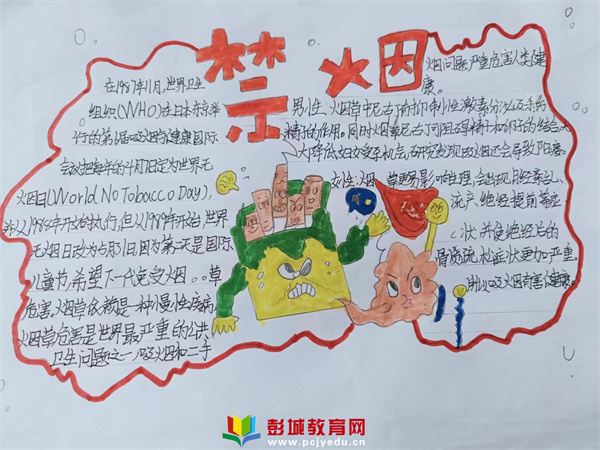 禁 烟
在1987年11月,世界卫生
组织(WHO)在日本东京举
行的第届吸烟与健康国际
会议把每年的4月7日定为世界无
火因日(World No Tobacco Day),
并从1988年开始执行,但从1989年开始,世界
无火因日改为5月31日,因为第二天是国际
儿童节,希望下一代免受火因草
危害,火因草依赖是一种慢性疾病,
火因草危害是世界最严重的公共
卫生问题之一,吸火因和二手
火因问题严重危害人类健
康。
男性,火因草中尼古丁有抑制性激素分泌及杀
精子的作用。同时火因草尼古丁可阻碍精子和卵子的结合,大
大降低妇女受孕机会,研究发现吸火因还会导致阳痿。
女性火因草更易影响生理,会出现月经紊乱、
流产、绝经提前等症
状,并使绝经后的
骨质疏松症状更加严重。
所以吸火因有害健康。
彭城教育网
www.pcjyedu.cn